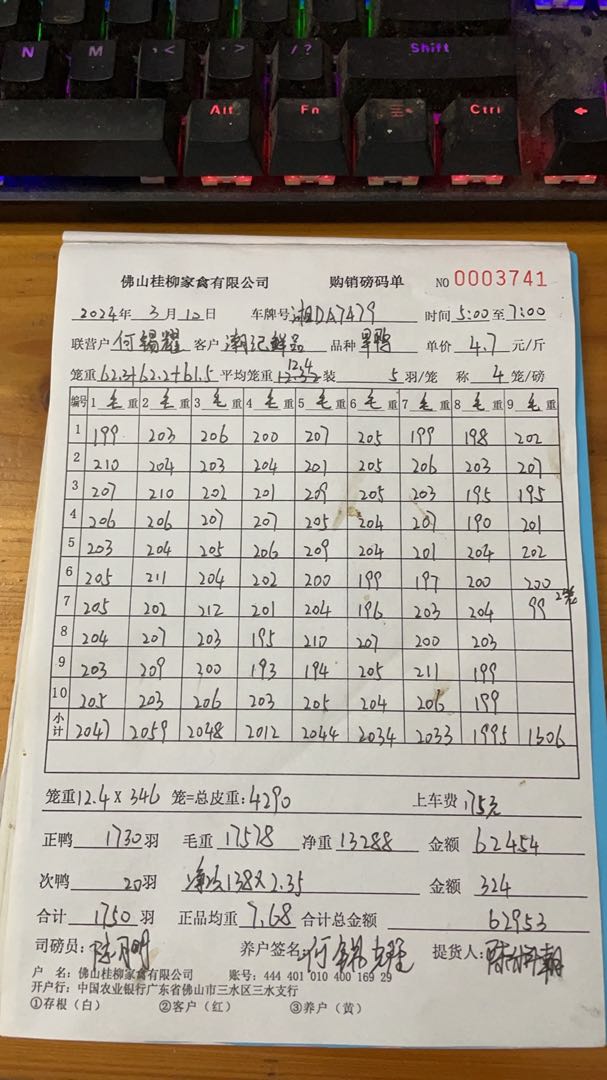 N M , < . > / ? Shift
Alt Fn Ctrl ←
佛山桂柳家禽有限公司 购销磅码单 NO 0003741
2024年 3月12日 车牌号 湘DA7479 时间 5:00至7:00
联营户 何锡耀 客户 潮记鲜品 品种 单价 4.7 元/斤
12.4
笼重 62.3+62.2+61.5 平均笼重 12.32 装 5 羽/笼 称 4 笼/磅
编号 1 毛 重 2 毛 重 3 毛 重 4 毛 重 5 毛 重 6 毛 重 7 毛 重 8 毛 重 9 毛 重
1 199 203 206 200 207 205 199 198 202
2 210 204 203 204 201 205 206 203 207
3 207 210 202 201 209 205 203 195 195
4 206 206 207 207 205 204 207 190 201
5 203 204 205 206 209 204 201 204 202
6 205 211 204 202 200 199 197 200 200
7 205 202 212 201 204 196 203 204 99 2笼
8 204 207 203 195 210 207 200 203
9 203 209 200 193 194 205 211 199
10 205 203 206 203 205 204 206 199
小计 2047 2059 2048 2012 2044 2034 2033 1995 1306
笼重12.4 X 346 笼=总皮重:4290 上车费 175元
正鸭 1730羽 毛重 17578 净重 13288 金额 62454
次鸭 20羽 净重138×2.35 金额 324
合计 1750 羽 正品均重 7.68 合计总金额 62953
司磅员: 陈月明 养户签名: 何锡耀 提货人:
户 名: 佛山桂柳家禽有限公司 账号: 444 401 010 400 169 29
开户行: 中国农业银行广东省佛山市三水区三水支行
①存根(白) ②客户(红) ③养户(黄)